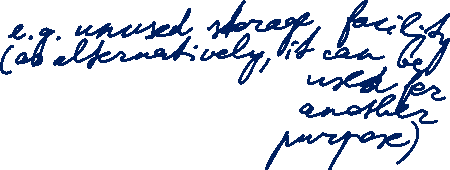 e.g. unused storage facility
(or alternatively, it can be
used for
another
purpose)